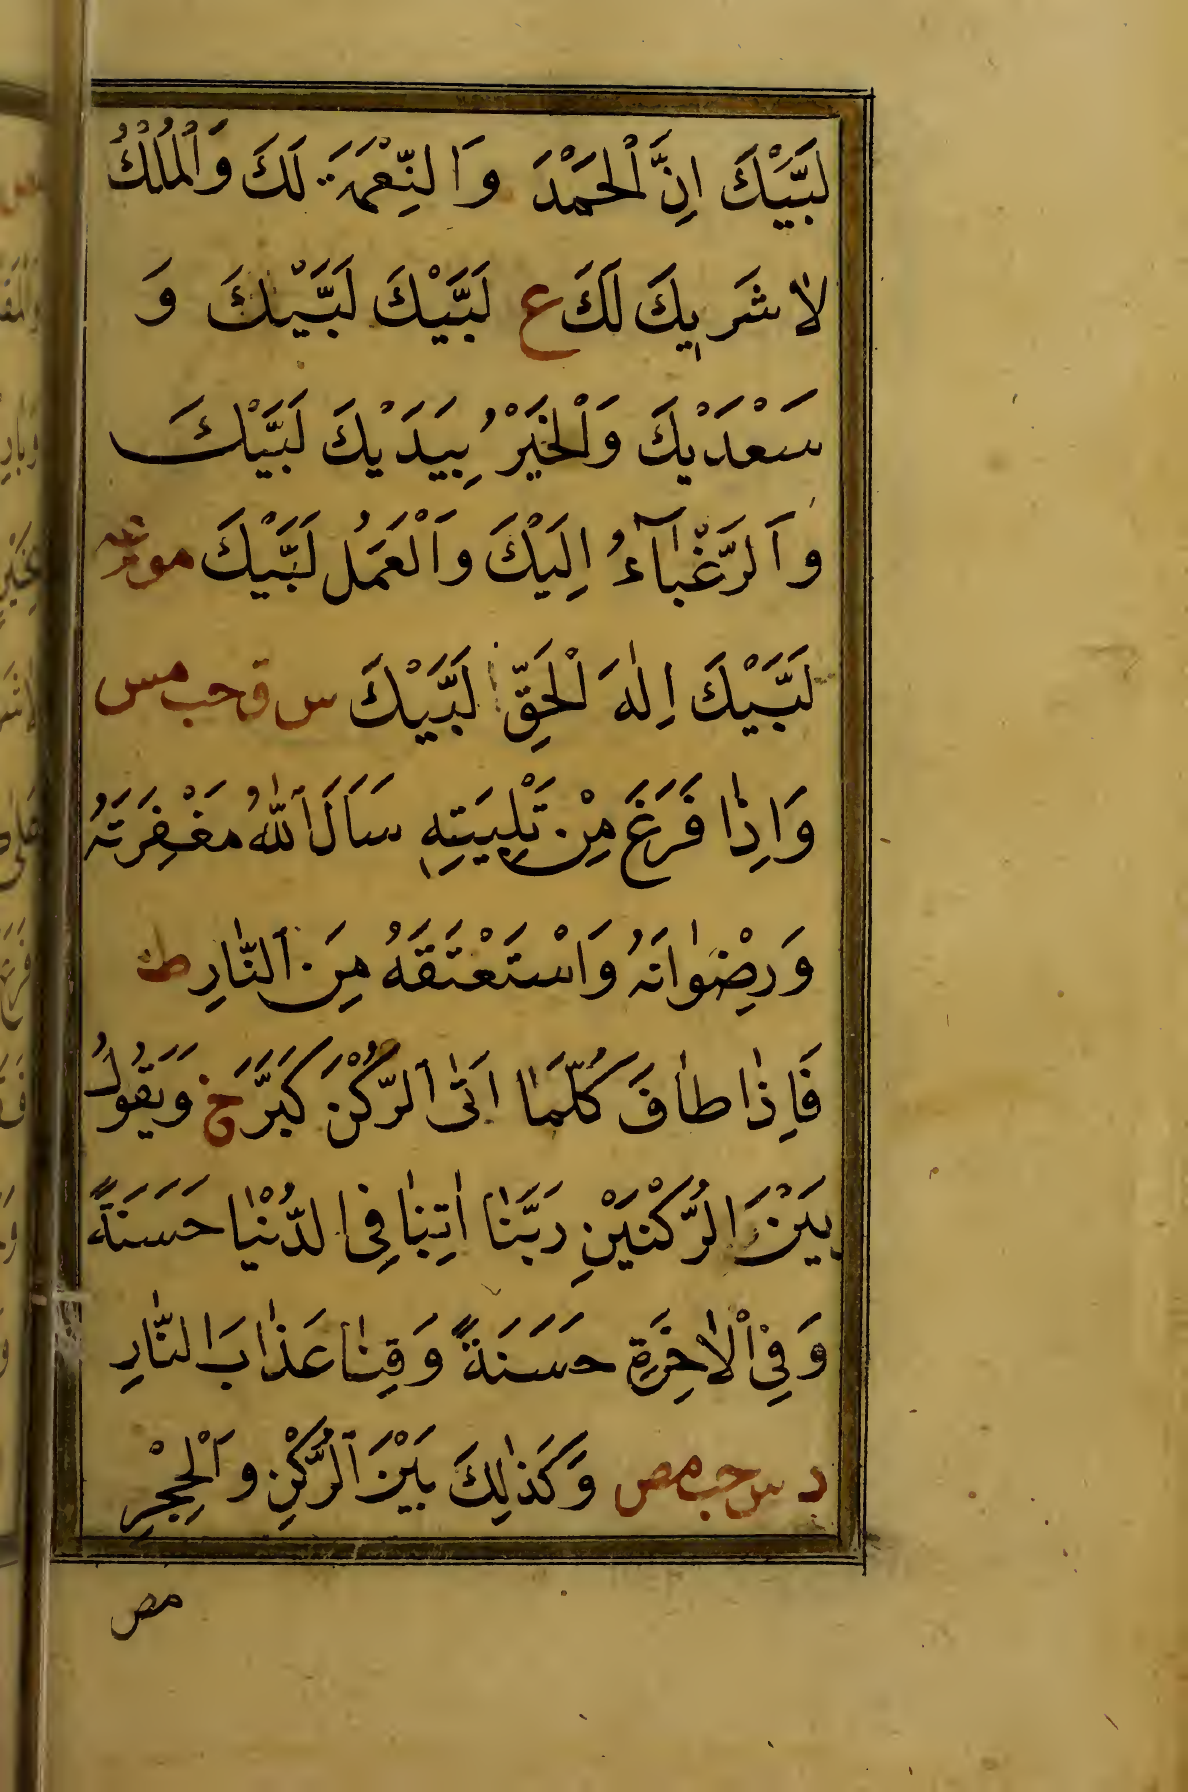 لَبَّيْكَ اِنَّ اْلحَمْدَ وَالنِّعْمَةَ لَكَ وَاْلمُلْكُ
لَا شَرِيكَ لَكَ ع لَبَّيْكَ لَبَّيْكَ وَ
سَعْدَيْكَ وَاْلخَيْرُ بِيَدَيْكَ لَبَّيْكَ
وَالرَّغْبَآءُ اِلَيْكَ وَاْلعَمَلُ لَبَّيْكَ
لَبَّيْكَ اِلٰهَ اْلحَقِّ لَبَّيْكَ س ق حب مس
وَاِذَا فَرَغَ مِنْ تَلْبِيَتِهِ سَاَلَ اللّٰهَ مَغْفِرَتَهُ
وَرِضْوٰانَهُ وَاسْتَعْتَقَهُ مِنَ النّٰارِ ط
فَاِذٰا طٰافَ كُلَّمٰا اَتَى الرُّكْنَ كَبَّرَ خ وَيَقُولُ
بَيْنَ الرُّكْنَيْنِ رَبَّنٰا اٰتِنٰا فِى الدُّنْيٰا حَسَنَةً
وَفِى اْلاٰخِرَةِ حَسَنَةً وَقِنٰا عَذٰابَ النّٰارِ
د س حب مص وَكَذٰلِكَ بَيْنَ الرُّكْنِ وَاْلحِجْرِ
مص